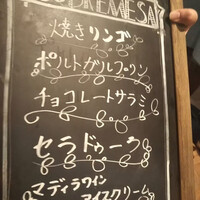 SOBREMESA
焼きリンゴ
ポルトガルプリン
チョコレートサラミ
セラドゥーラ
マディラワイン
アイスクリーム